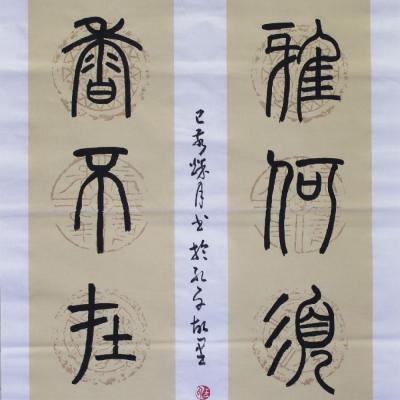 雅何須
香不在
己亥月书於孔子故里